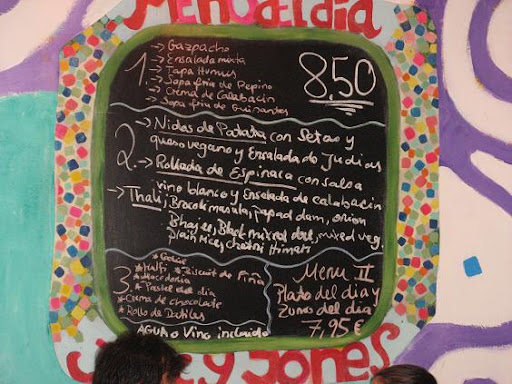 Menú del día
1 → Gazpacho
→ Ensalada mixta
→ Tapa Humus
→ Sopa fria de Pepino
→ Crema de Calabacin
→ Sopa fria de Guisantes
8,50
2. → Nidos de Patata con Setas y
queso vegano y Ensalada de Judias
→ Rollada de Espinaca con salsa
vino blanco y Ensalada de calabacin
→ Thali; Brocoli masala, papad dam, onion
Bhajee, Black mixed dal, mixed veg.
Plain Rice, chutni
3 *
* Kulfi * Biscuit de Piña
* Macedonia
* Pastel del dia
* Crema de chocolate
* Rollo de Datiles
AGUA o Vino incluido
Menu II
Plato del dia y
Zumo del dia
7,95€
y Jones